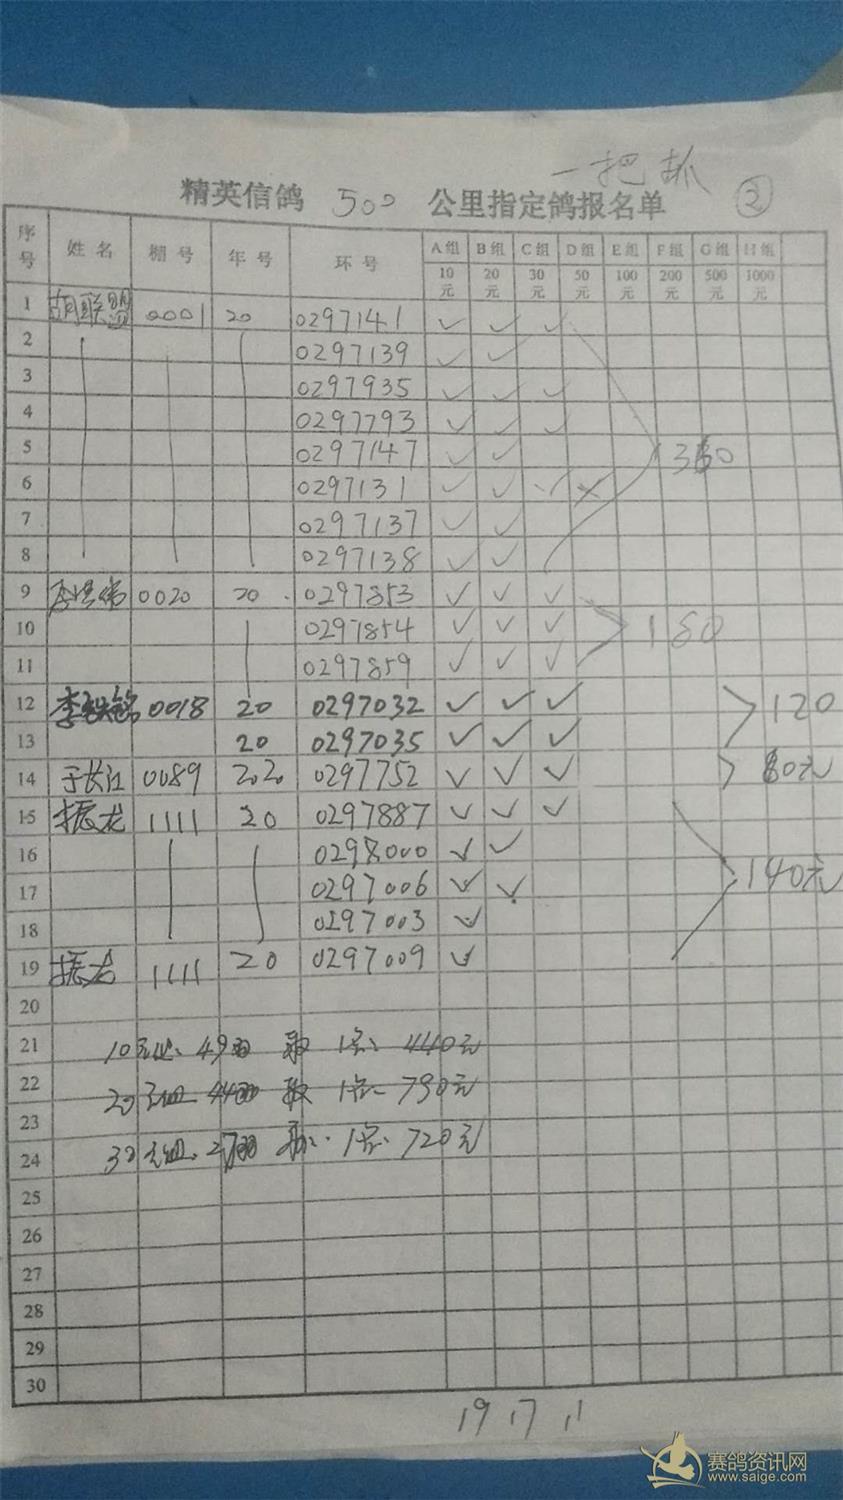 一把抓
精英信鸽 500 公里指定鸽报名单 ②
序号 姓名 棚号 年号 环号 A组 B组 C组 D组 E组 F组 G组 H组
10元 20元 30元 50元 100元 200元 500元 1000元
1 胡联盟 0001 20 0297141 ✓ ✓ ✓
2 0297139 ✓ ✓
3 0297935 ✓ ✓ ✓
4 0297793 ✓ ✓ ✓
5 0297147 ✓ ✓
6 0297131 ✓ ✓
7 0297137 ✓ ✓
8 0297138 ✓ ✓
9 0020 20 0297853 ✓ ✓ ✓
10 0297854 ✓ ✓ ✓ 180
11 0297859 ✓ ✓ ✓
12 李铁铭 0018 20 0297032 ✓ ✓ ✓ 120
13 20 0297035 ✓ ✓ ✓
14 于长江 0089 2020 0297752 ✓ ✓ ✓ 60元
15 振龙 1111 20 0297887 ✓ ✓ ✓
16 0298000 ✓ ✓
17 0297006 ✓ ✓ 140元
18 0297003 ✓
19 振龙 1111 20 0297009 ✓
20
21 10元组 49羽 取 1名 440元
22 20元组 44羽 取 1名 790元
23
24 30元组 27羽 取 1名 720元
25
26
27
28
29
30
19 17 11
赛鸽资讯网
www.saige.com